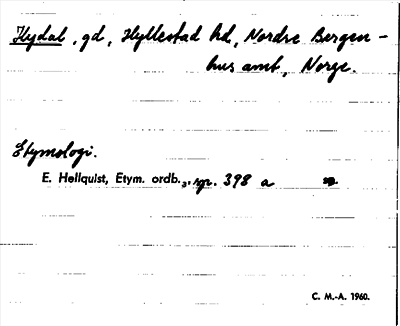 Hydal, gd, Hyllestad hd, Nordre Bergen-
hus amt, Norge.
Etymologi.
E. Hellquist, Etym. ordb.3, sp. 398 a
C. M.-A. 1960.